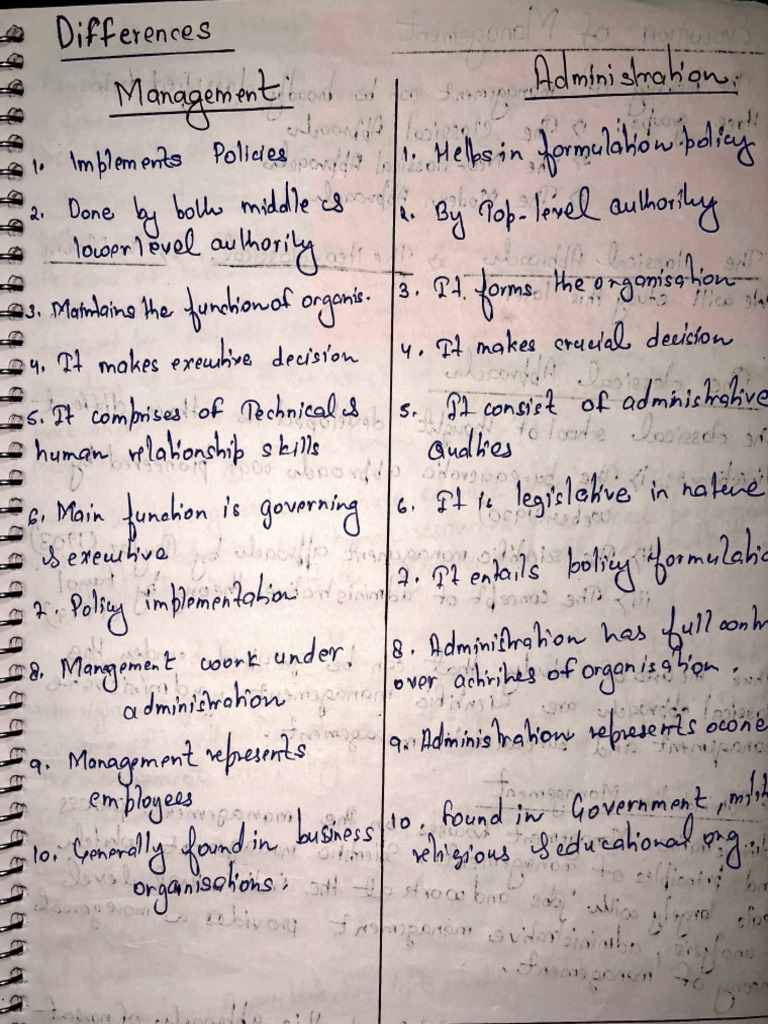 Differences
Management
1. Implements Policies
2. Done by both middle &
lower level authority
3. Maintains the function of organis.
4. It makes executive decision
5. It comprises of Technical &
human relationship skills
6. Main function is governing
& executive
7. Policy implementation
8. Management work under
administration
9. Management represents
employees
10. Generally found in business
organisations.
Administration.
1. Helps in formulation policy
2. By Top-level authority
3. It forms the organisation
4. It makes crucial decision
5. It consist of administrative
Qualties
6. It is legislative in nature
7. It entails policy formulatio
8. Administration has full cont
over activities of organisation.
9. Administration represents
10. found in Government,
religious & educational org..